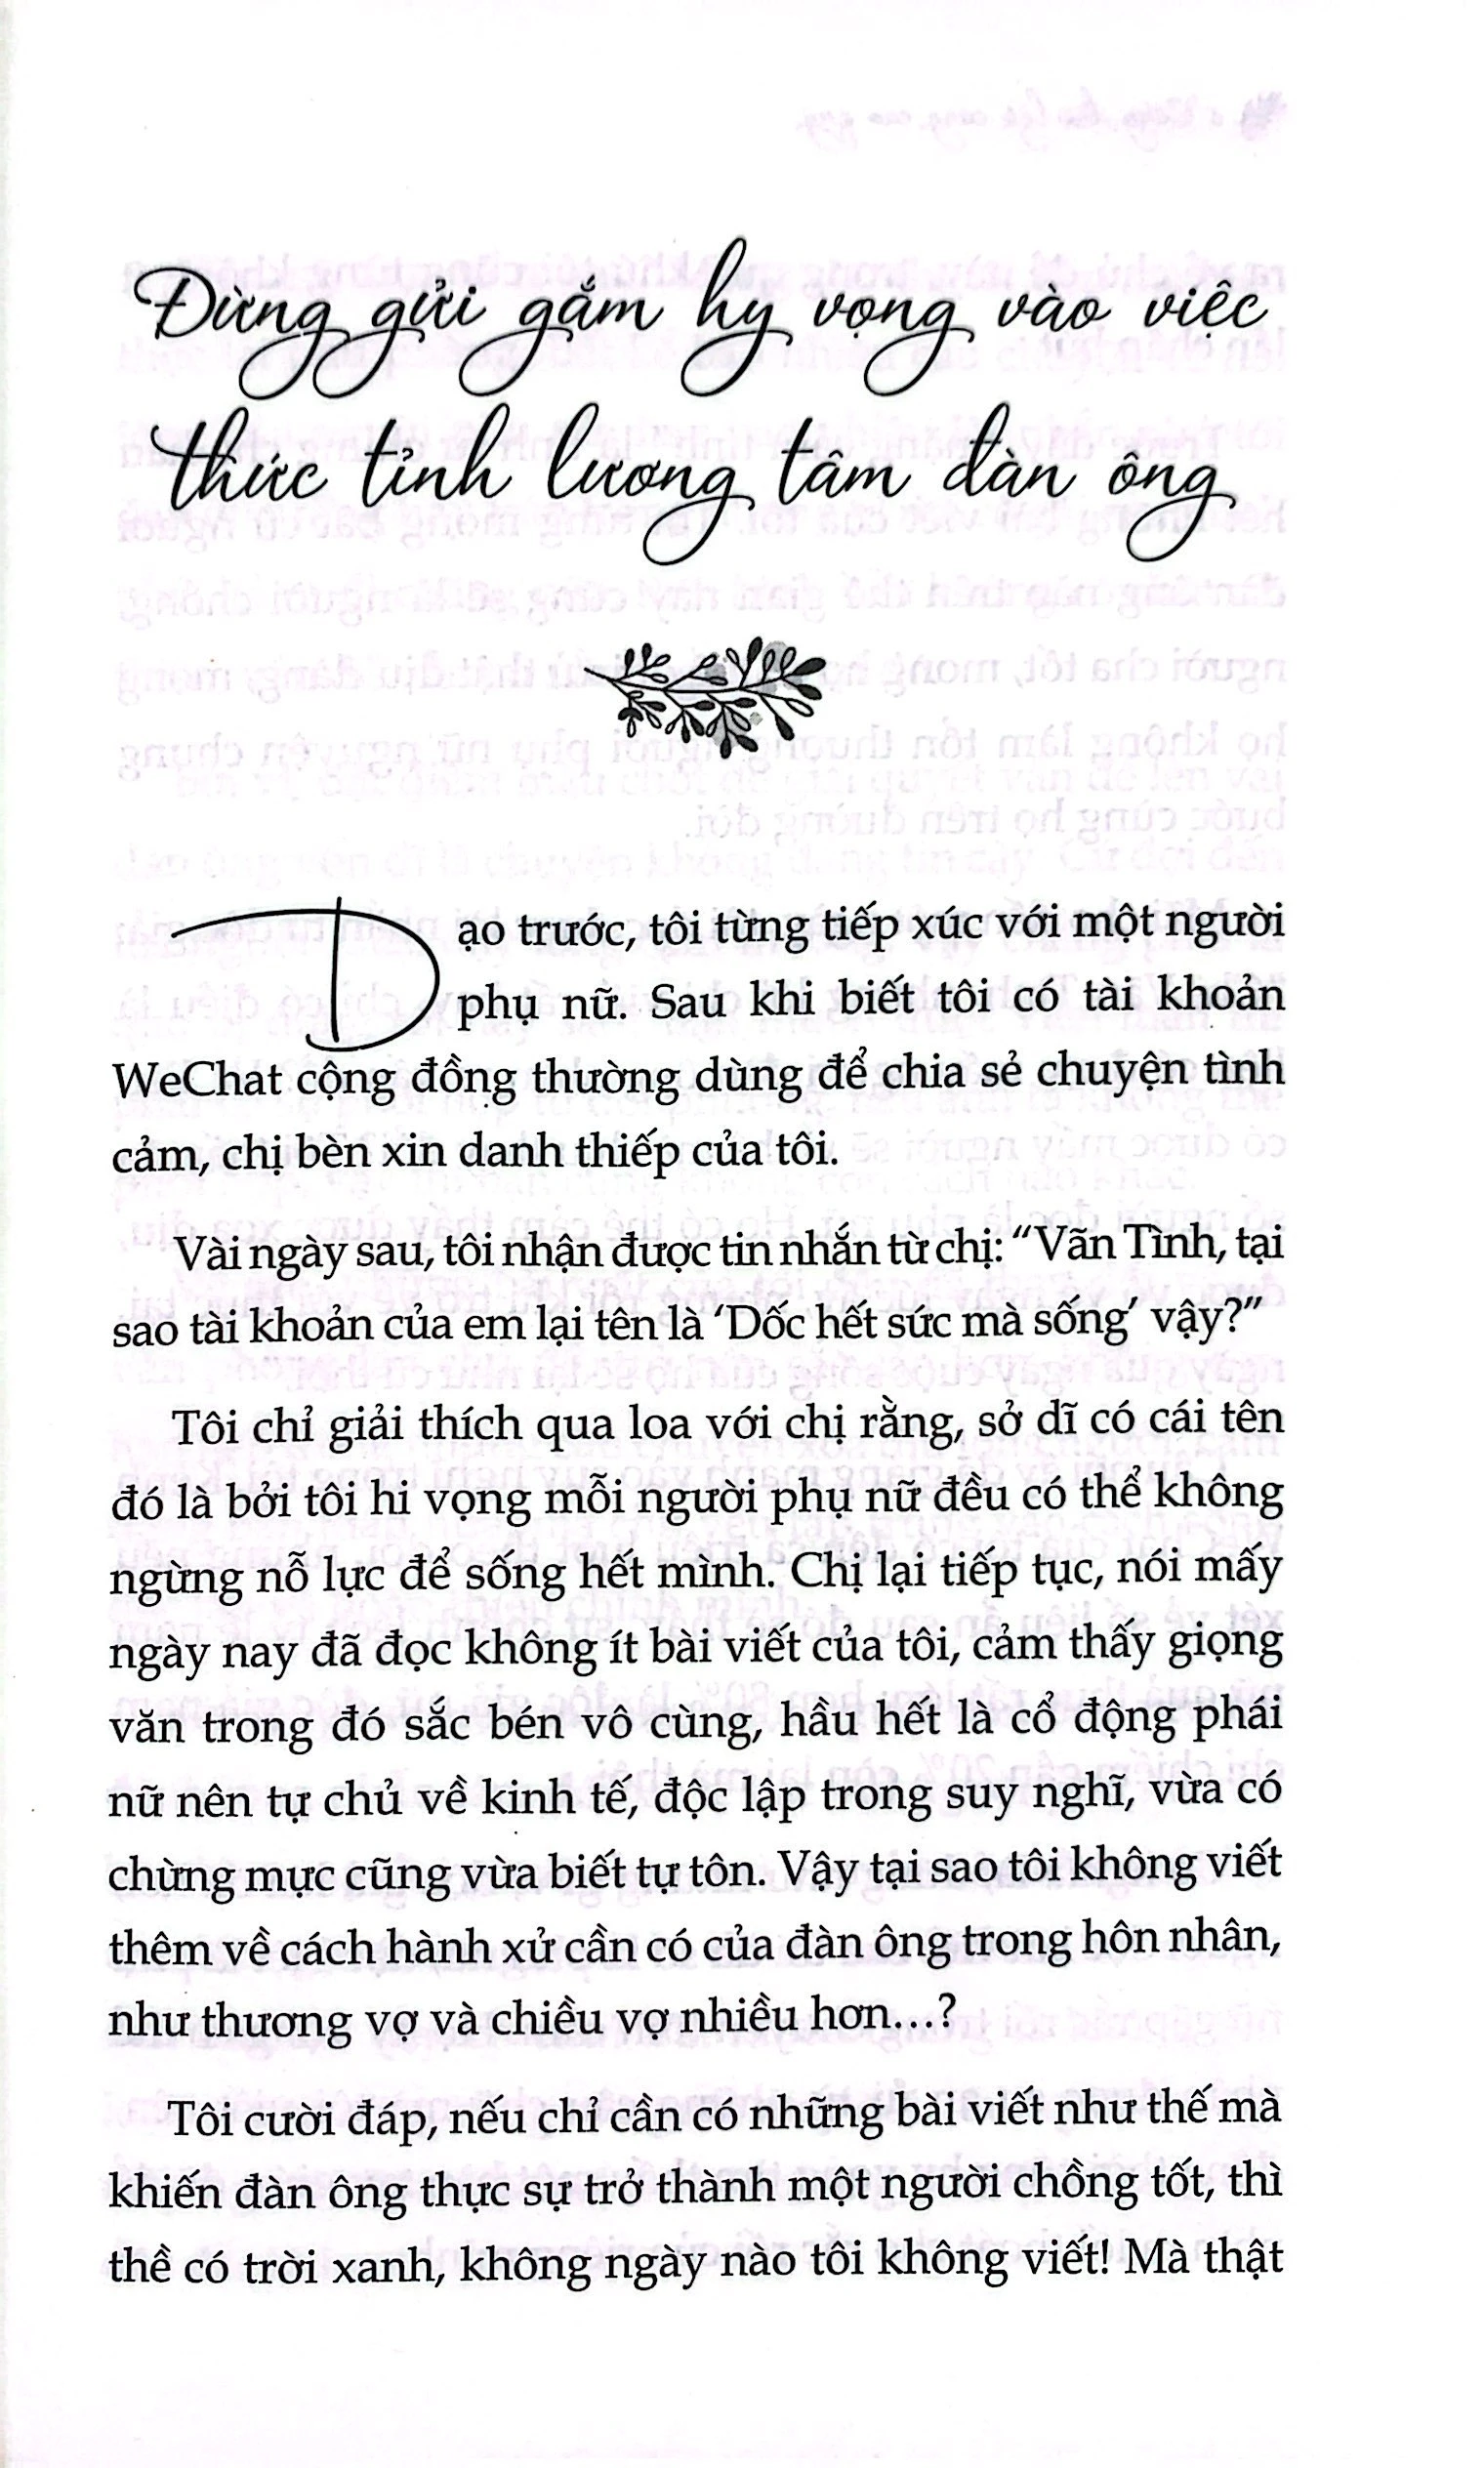 Đừng gửi gắm hy vọng vào việc
thức tỉnh lương tâm đàn ông
Dạo trước, tôi từng tiếp xúc với một người
phụ nữ. Sau khi biết tôi có tài khoản
WeChat cộng đồng thường dùng để chia sẻ chuyện tình
cảm, chị bèn xin danh thiếp của tôi.
Vài ngày sau, tôi nhận được tin nhắn từ chị: “Vãn Tình, tại
sao tài khoản của em lại tên là ‘Dốc hết sức mà sống’ vậy?”
Tôi chỉ giải thích qua loa với chị rằng, sở dĩ có cái tên
đó là bởi tôi hi vọng mỗi người phụ nữ đều có thể không
ngừng nỗ lực để sống hết mình. Chị lại tiếp tục, nói mấy
ngày nay đã đọc không ít bài viết của tôi, cảm thấy giọng
văn trong đó sắc bén vô cùng, hầu hết là cổ động phái
nữ nên tự chủ về kinh tế, độc lập trong suy nghĩ, vừa có
chừng mực cũng vừa biết tự tôn. Vậy tại sao tôi không viết
thêm về cách hành xử cần có của đàn ông trong hôn nhân,
như thương vợ và chiều vợ nhiều hơn...?
Tôi cười đáp, nếu chỉ cần có những bài viết như thế mà
khiến đàn ông thực sự trở thành một người chồng tốt, thì
thề có trời xanh, không ngày nào tôi không viết! Mà thật